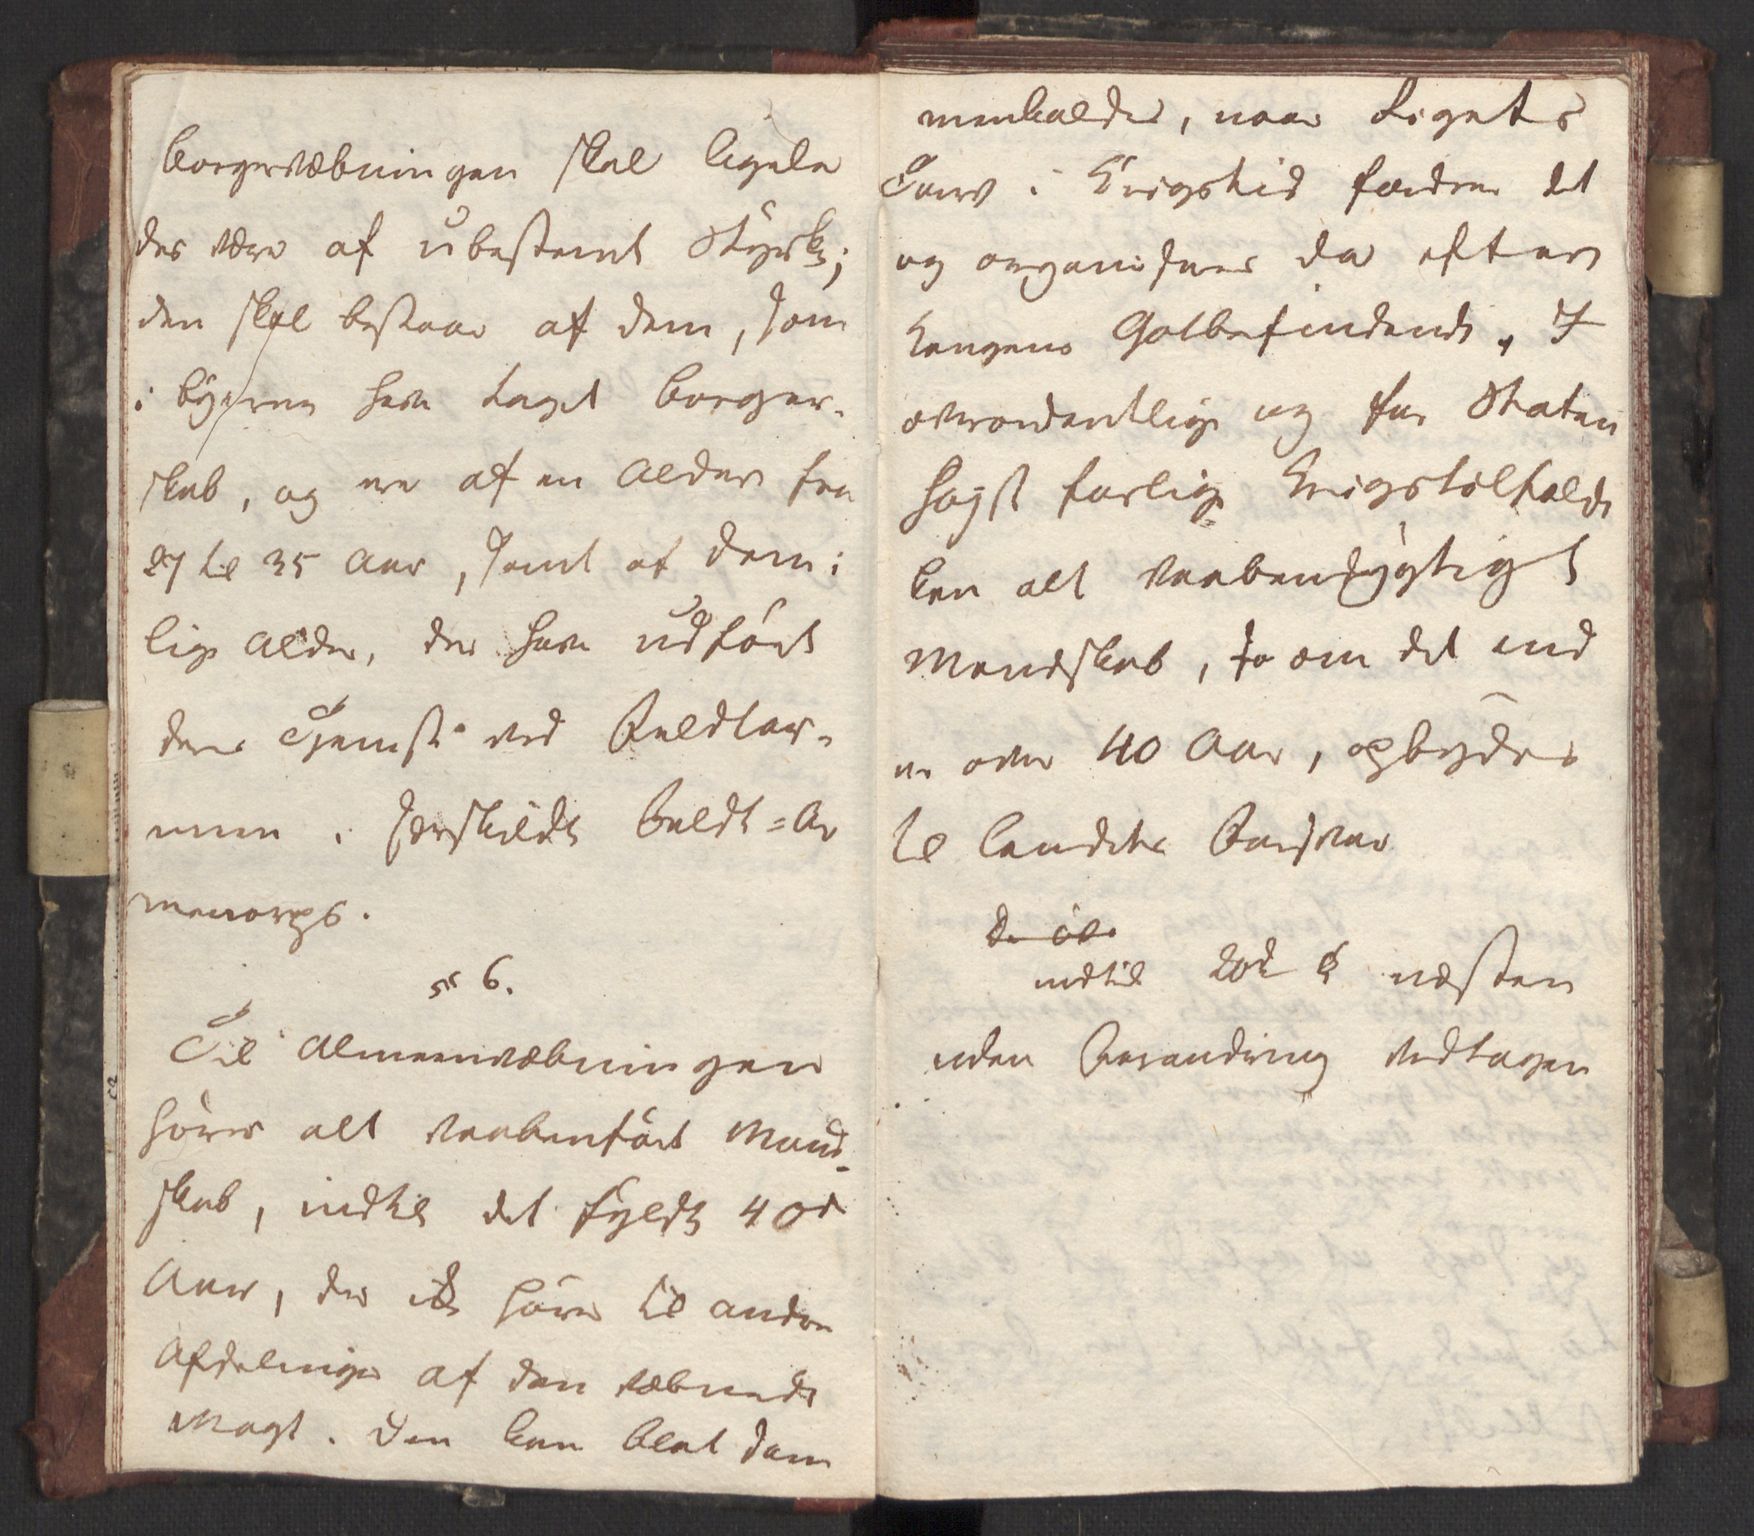 Borgervæbningen skal ligele
des være af ubestemt Styrke;
den skal bestaae af dem, som
i Byerne have taget Borger-
skab, og ere af en Alder fra
27 til 35 Aar, samt af dem i
lige Alder, der have udført
deres Tjeneste ved Feldtar-
meen i særskildte Feldt=Ar
mecorps.
§ 6.
Til Almeenvæbningen
hører alt vaabenført Mand-
skab, indtil det fyldte 40de
Aar, der ikke hører til andre
Afdelinger af den væbnede
Magt. Den kan blot sam
menkaldes, naar Rigets
Tarv i Krigstid fordrer det
og organiseres da efter
Kongens Godtbefindende. I
overordentlige og for Staten
høist farlige Krigstilfælde
kan alt vaabendygtigt
Mandskab, so om det end
er over 40 Aar, opbydes
til Landets Forsvar
indtil 20de § næsten
uden Forandring vedtagen